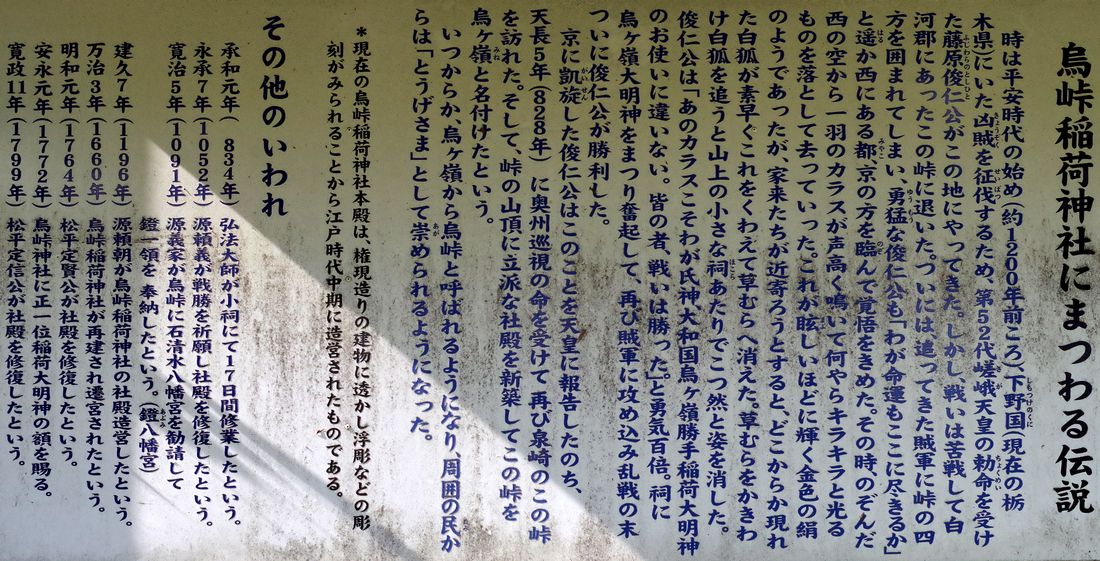 烏峠稲荷神社にまつわる伝説
時は平安時代の始め(約1200年前ころ)、下野国(現在の栃
木県)にいた凶賊を征伐するため、第52代嵯峨天皇の勅命を受け
た藤原俊仁公がこの地にやってきた。しかし、戦いは苦戦して白
河郡にあったこの峠に退いた。ついには追ってきた賊軍に峠の四
方を囲まれてしまい、勇猛な俊仁公も「わが命運もここに尽きるか」
と遥か西にある都、京の方を臨んで覚悟をきめた。その時、のぞんだ
西の空から一羽のカラスが声高く鳴いて何やらキラキラと光る
ものを落として去っていった。これが眩しいほどに輝く金色の絹
のようであったが、家来たちが近寄ろうとすると、どこからか現れ
た白狐が素早ぐこれをくわえて草むらへ消えた。草むらをかきわ
け白狐を追うと山上の小さな祠あたりでこつ然と姿を消した。
俊仁公は「あのカラスこそわが氏神大和国烏ヶ嶺勝手稲荷大明神
のお使いに違いない。皆の者、戦いは勝った」と勇気百倍。祠に
烏ヶ嶺大明神をまつり奮起して、再び賊軍に攻め込み乱戦の末
ついに俊仁公が勝利した。
京に凱旋した俊仁公はこのことを天皇に報告したのち、
天長5年(828年)に奥州巡視の命を受けて再び泉崎のこの峠
を訪れた。そして、峠の山頂に立派な社殿を新築してこの峠を
烏ヶ嶺と名付けたという。
いつからか、烏ヶ嶺から烏峠と呼ばれるようになり、周囲の民か
らは「とうげさま」として崇められるようになった。
*現在の烏峠稲荷神社本殿は、権現造りの建物に透かし浮彫などの彫
刻がみられることから江戸時代中期に造営されたものである。
その他のいわれ
承和元年(834年)弘法大師が小祠にて17日間修業したという。
永承7年(1052年)源頼義が戦勝を祈願し社殿を修復したという。
寛治5年(1091年)源義家が烏峠に石清水八幡宮を勧請して
鐙一領を奉納したという。(鐙八幡宮)
建久7年(1196年)源頼朝が烏峠稲荷神社の社殿造営したという。
万治3年(1660年)烏峠稲荷神社が再建され遷宮されたという。
明和元年(1764年)松平定賢公が社殿を修復したという。
安永元年(1772年)烏峠神社に正一位稲荷大明神の額を賜る。
寛政11年(1799年)松平定信公が社殿を修復したという。